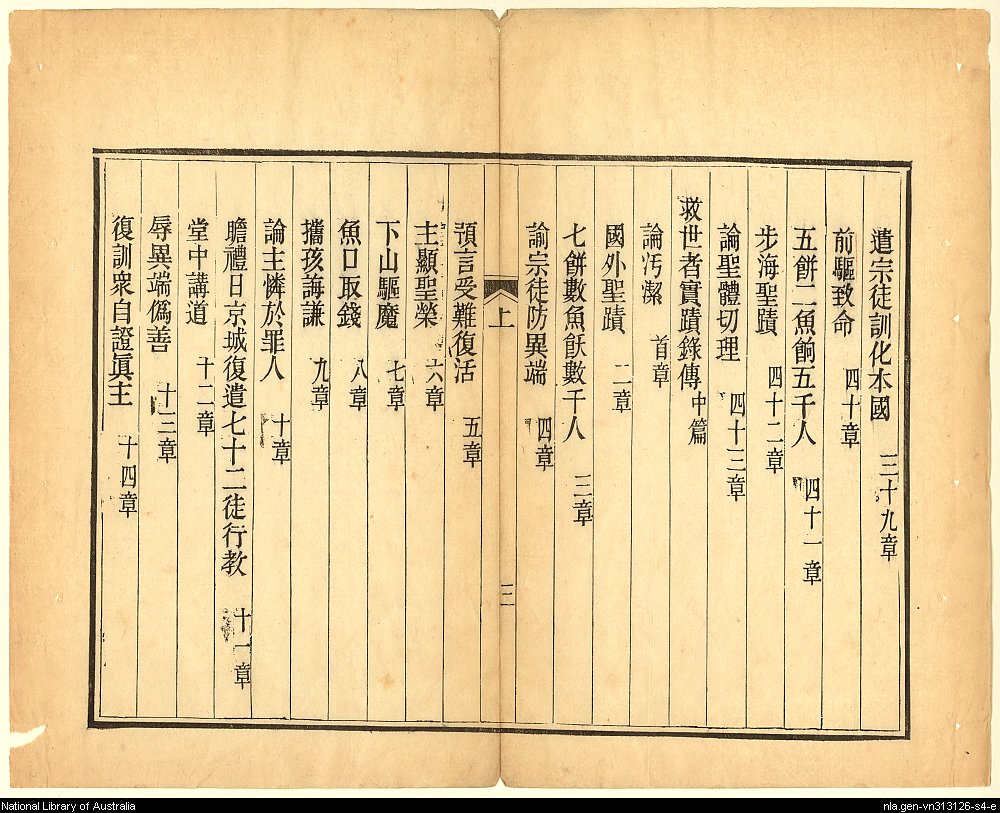 遣宗徒訓化本國 三十九章
前驅致命 四十章
五餅二魚餉五千人 四十一章
步海聖蹟 四十二章
論聖體切理 四十三章
救世者實蹟錄傳中篇
論汚潔 首章
國外聖蹟 二章
七餅數魚飫數千人 三章
諭宗徒防異端 四章
上 三
預言受難復活 五章
主顯聖榮 六章
下山驅魔 七章
魚口取錢 八章
攜孩誨謙 九章
論主憐於罪人 十章
瞻禮日京城復遣七十二徒行教 十一章
堂中講道 十二章
辱異端僞善 十三章
復訓衆自證眞主 十四章
National Library of Australia
nla.gen-vn313126-s4-e